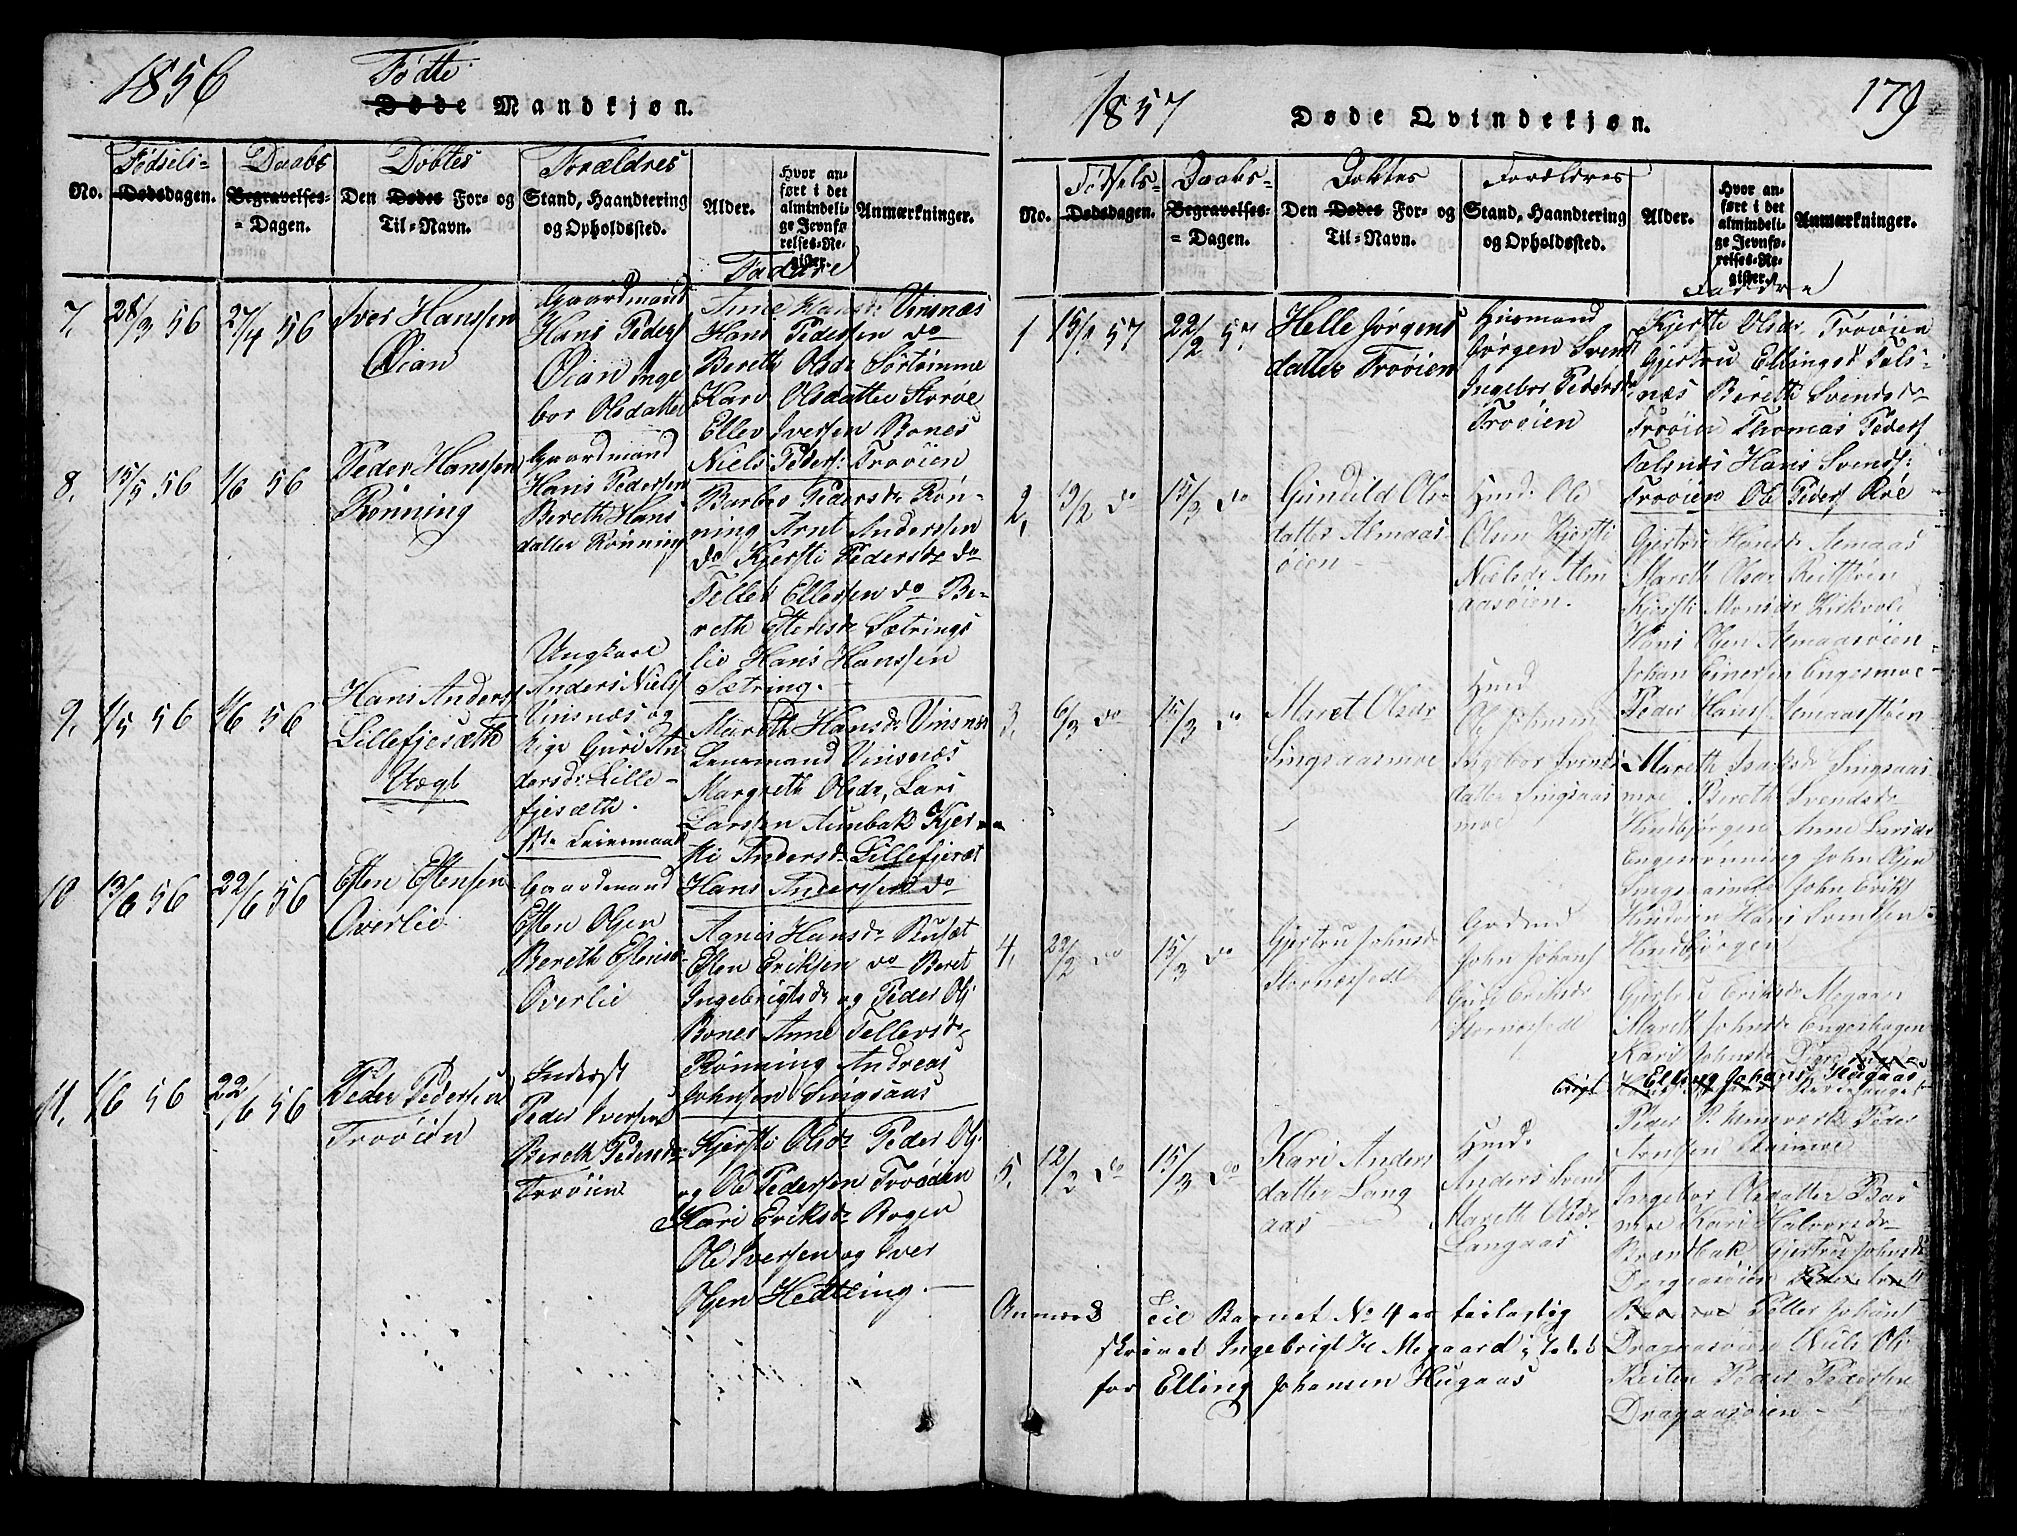 1856
Fødte
Døde Mandkjøn.
Fødsels-
Daabs
Døbtes
Forældres
No.
Dødsdagen.
Begravelses-
= Dagen.
Den Dødes For- og
Til-Navn.
Stand, Haandtering
og Opholdssted.
Alder.
Hvor an-
ført i det
almindeli-
ge Jevnfø-
relses-Re-
gister.
Anmærkninger.
Faddere
7,
28/3 56
27/4 56
Iver Hanssen
Øian
Gaardmand
Hans Peders
Øian Inge
bor Olsdatter
Anne Hansd: Vinsnæs
Hans Pedersen do
Bereth Olsdr Sørtømme
Kari Olsdatter Storøe
Ellev Iversen Bones
Niels Peders: Trøøien
8,
15/5 56
1/6 56
Peder Hanssen
Rønning
Gaardmand
Hans Pedersen
Bereth Hans
datter Rønning
Barbro Pedersdr Røn-
ning Arnt Anderssen
do Kjersti Pedersdr do
Tellef Ellefsen do Be-
reth Estensdr Sætrings
lie Hans Hanssen
Sætring.
9,
1/5 56
1/6 56
Hans Anders
Lillefjesæth
Uægt
Ungkarl
Anders Niels
Vinsnæs og
Pige Guri An
dersdr: Lille-
fjesæth.
1ste Leiermaal
Mareth Hansdr Vinsnæs
Lensmand Vinsnæs
Margreth Olsdr, Lars
Larssen Aunbak Kjer
sti Andersdr Lillefjeset
Hans Anderssen do
10
13/6 56
22/6 56
Esten Estensen
Overlie
Gaardmand
Esten Olsen
Bereth Estensd
Overlie
Agnis Hansdr Buset
Esten Eriksen do Beret
Ingebrigtsdr og Peder Ols
Bones Anne Tellefsdr
Rønning Andreas
Johnsen Singsaas
11,
1/6 56
22/6 56
Peder Pedersen
Trøøien
Inderst
Peder Iversen
Bereth Pedersdr
Trøøien
Kjersti Olsdr Peder Ols
og Ole Pedersen Trøøien
Kari Eriksdr Bogen
Ole Iversen og Iver
Olsen Hedtling.
1857
179
Døde Qvindekjøn.
Fødsels-
Daabs-
Døbtes
Forældres
No.
Dødsdagen.
Begravelses-
= Dagen.
Den Dødes For- og
Til-Navn.
Stand, Haandtering
og Opholdssted.
Alder.
Hvor an-
ført i det
almindeli-
ge Jevnfø-
relses-Re-
gister.
Anmærkninger.
Faddre
1
15/1 57
22/2 57
Helle Jørgens
datter Trøøien
Husmand
Jørgen Svends
Ingebor Pedersdr
Trøøien
Kjersti Olsdr, Trøøien
Gjertru Ellingsd Tals-
næs Bereth Svendsdr
Trøøien Thomas Peders
Talsnæs Hans Svends:
Trøøien Ole Peders Røe
2,
13/2 do
15/3 do
Gunild Ols-
datter Almaas
øien
Husmd: Ole
Olsen Kjersti
Nielsdr Alm
aasøien.
Gjertru Hansdr Almaas
Mareth Olsdr Reitstøen
Kjersti Monsdr Kirkvold
Hans Olsen Almaasøien
Johan Einersen Engesmoe
Peder Hans Almaasstøen
3,
6/3 do
15/3 do
Maret Olsdr
Singsaasmoe
Husmd
Ole Johnsen
Ingebor Svends
datter Singsaas
moe
Mareth Isaksdr Singsaas
moe Bereth Svendsdr
Hindbjørgen Anne Larsdr
Engerønning John Olsen
John Eriks
Hindøien Hans Svendsen
Hindbjørgen
4,
22/2 do
15/3 do
Gjertru Johnsdr
Størnæsfedt
Gaardmd
John Johans
Guri Eriksdr
Størnæsfedt
Gjertru Eriksdr Megaar
Mareth Johnsdr Engeshagen
Kari Johnsdr Digre
Elling Johans Hugaas
Peder
Arntsen
5,
12/2 do
15/3 do
Kari Anders
datter Lang
aas
Husmd:
Anders Svend
Mareth Olsdr
Langaas
Ingebor Olsdatter Bas
moe Kari Halvorsdr
Brandbak Gjertru Johnsdr
Dragaasøien
Peter Johans
Dragaasøien Niels Ols
Reiten Peder Pedersen
Dragaasøien
Anmærk Til Barnet No 4 er feilagtig
skrevet Ingebrigt H Megaard istedet
for Elling Johansen Hugaas